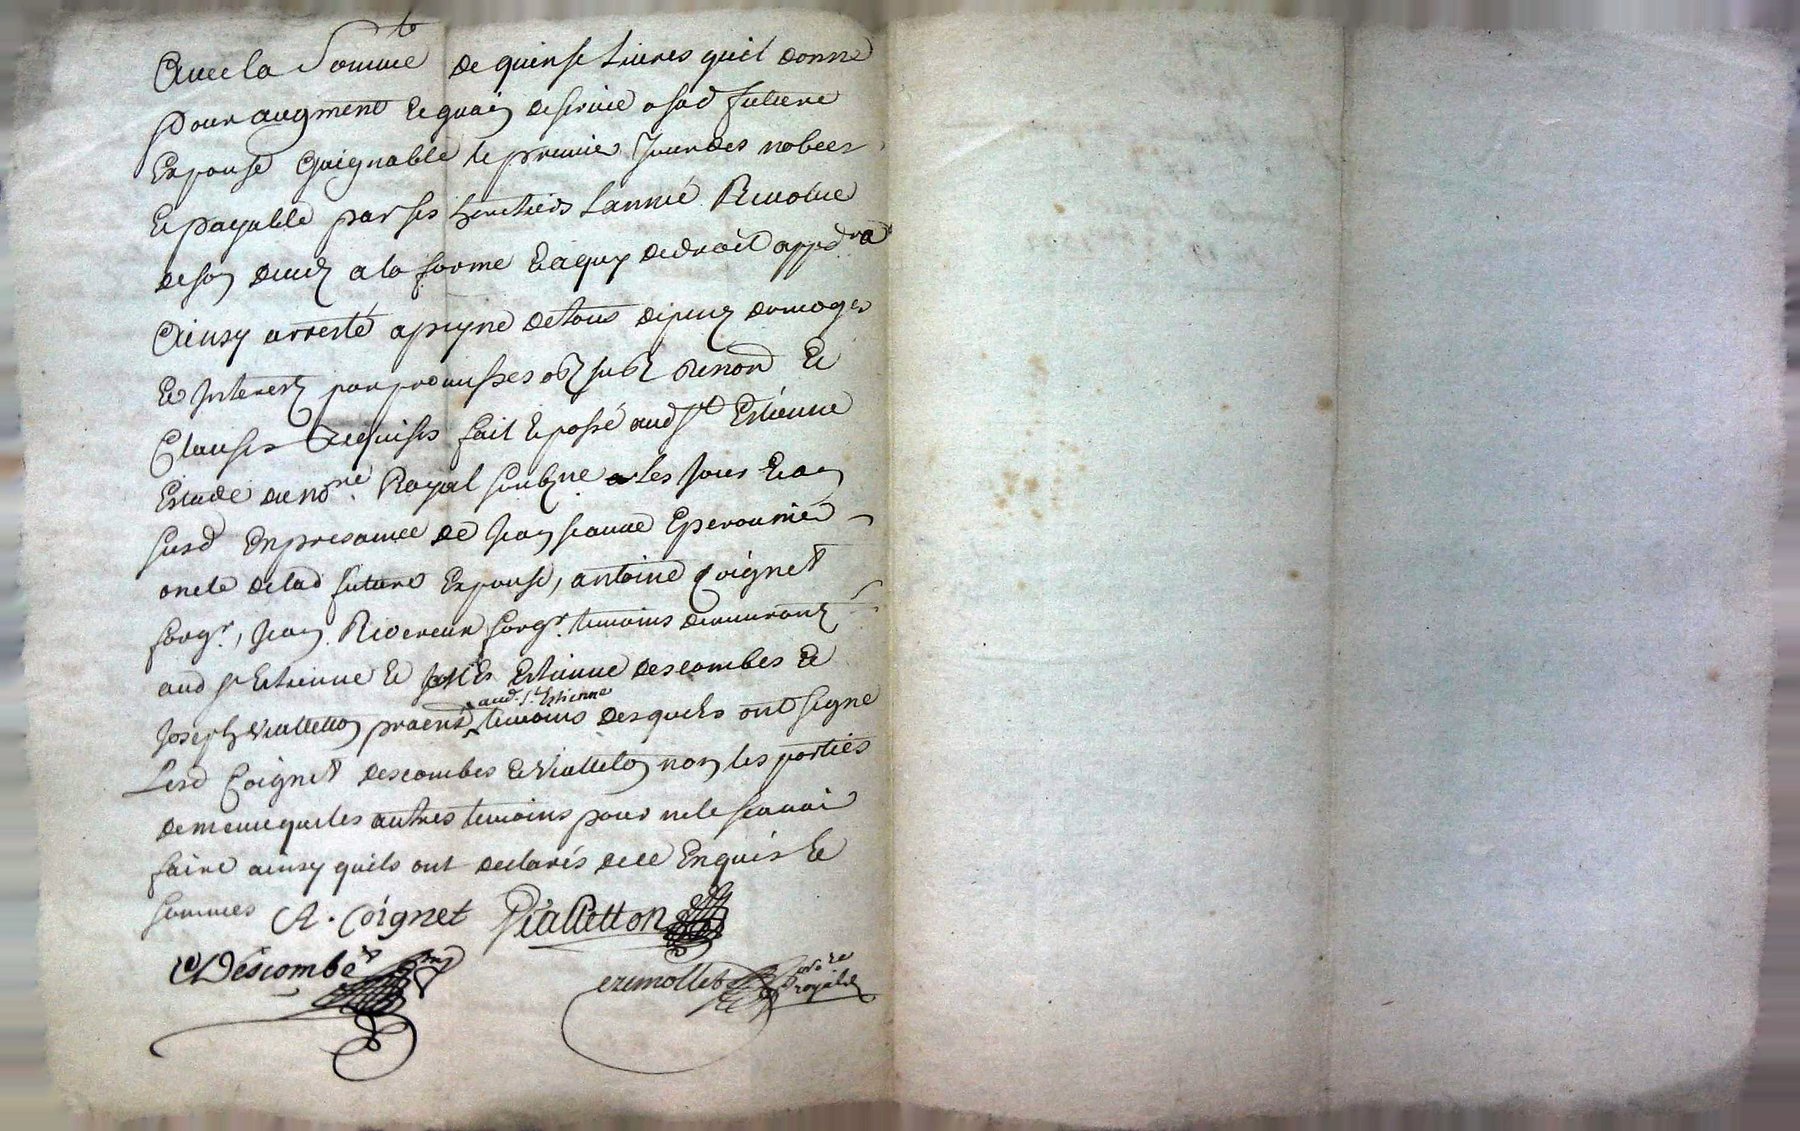 Avec la somme de quinse livres quil donne
pour augment et gain de survie a sad future
Expouse Gaignable le premier Jour des nobces
et payable par ses heretiers Lannée Revolue
de son deces a la forme du droit
Ainsy arresté a peyne de tous depens domages
et Interest par promisses obl sub Renon Et
Clauses requises fait Et passé aud st Etienne
Estude du no.re Royal soubne Les Jour Et an
susd En presance de Jean Eperonnier
oncle de lad future Expouse, antoine Coignet
forgr, Jean forgr. temoins demeurant
aud st Etienne Et Estienne Descombes Et
Joseph Vialletton aud. St Estienne temoins desquels ont signe
Lesd Coignet Descombes Et Vialleton non les parties
de meme que les autres temoins pour ne le scavoir
faire ainsy quils ont declarés de ce Enquis Et
sommes A. Coignet Vialletton
Descombes Ezemollet no.re royal